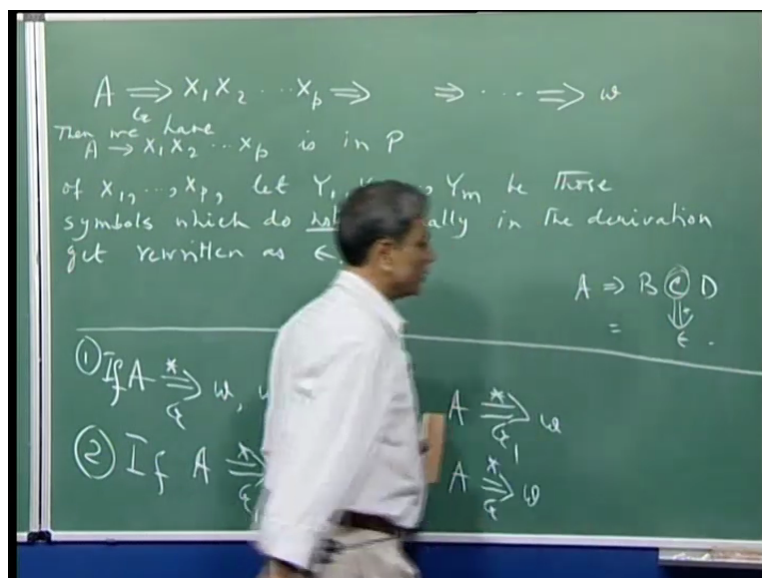 A ⇒ X₁ X₂ ... Xₚ ⇒ ⇒ ... ⇒ w
G
Then we have
A → X₁ X₂ ... Xₚ is in P
of X₁, ..., Xₚ, let Y₁, , Yₘ be those
symbols which do not in the derivation
get rewritten as ϵ.
A ⇒ B C D
=
* ϵ.
① If A *⇒ w, A *⇒ w
G G₁
② If A *⇒ A *⇒ w
G₁ G